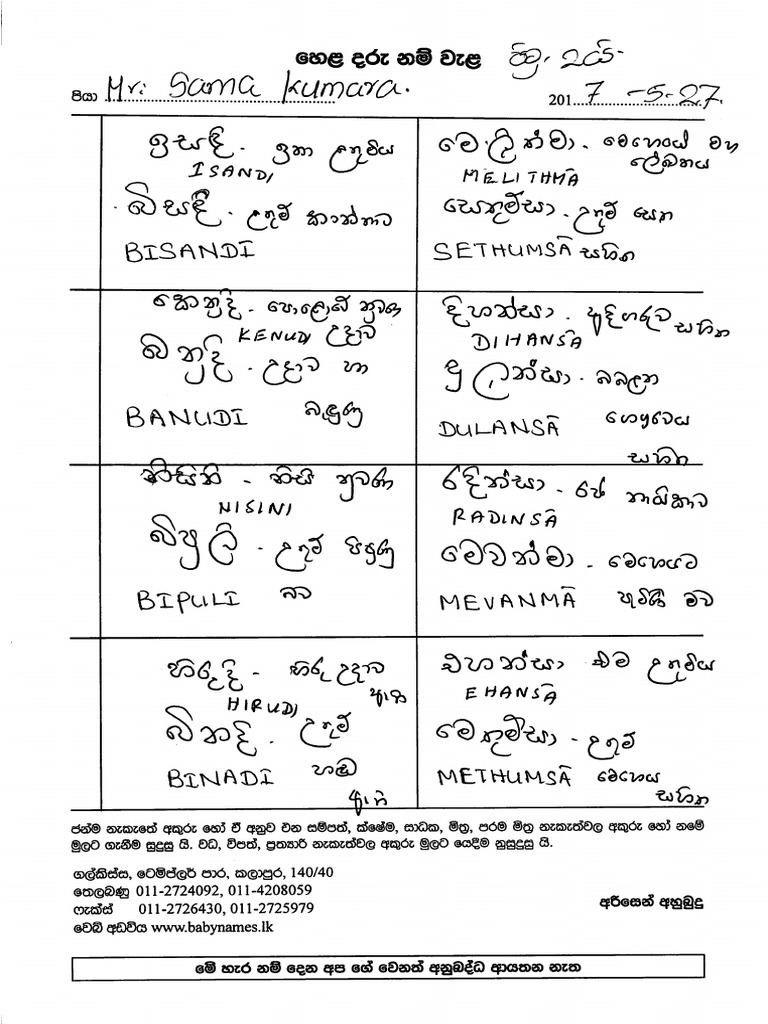 හෙළ දරු නම් වැළ
පියා Mr. Sama Kumara. 2017-5-27
ඉසඳි - ඉතා උතුම්ය
ISANDI
බිසඳී - උතුම් කාන්තාව
BISANDĪ
මෙලිත්මා - මෙහෙයේ මහ
ලේඛනය
MELITHMĀ
සෙතුම්සා - උතුම් සෙත
SETHUMSĀ සහිත
කෙනුදි - පොළොවේ නුවණ
KENUDI උදාව
බනුදි - උදාව හා
BANUDI බැඳුණු
දිහන්සා - ආදිගරුව
සහිත
DIHANSĀ
දුලන්සා - බබලන
DULANSĀ
සහිත
නිසිනි - නිසි නුවණ
NISINI
බිපුලි - උතුම් පිපුණු
BIPULI බව
රදින්සා - නායිකාව
RADINSĀ
මෙවන්මා - මෙහෙයට
MEVANMĀ මව
හිරුදි - හිරු උදාව
HIRUDI ඇති
බිනදි - උතුම්
BINADI හඬ
ඇති
එහන්සා එම උතුම්ය
EHANSĀ
මෙතුම්සා - උතුම්
METHUMSĀ මෙහෙය
සහිත
ජන්ම නැකැතේ අකුරු හෝ ඒ අනුව එන සම්පත්, ක්ෂේම, සාධක, මිත්‍ර, පරම මිත්‍ර නැකැත්වල අකුරු හෝ නමේ
මුලට ගැනීම සුදුසු යි. වධ, විපත්, ප්‍රත්‍යාරි නැකැත්වල අකුරු මුලට යෙදීම නුසුදුසු යි.
ගල්කිස්ස, ටෙම්ප්ලර් පාර, කලාපුර, 140/40
තෙලබණු 011-2724092, 011-4208059
ෆැක්ස් 011-2726430, 011-2725979
වෙබ් අඩවිය www.babynames.lk
අරිසෙන් අහුබුදු
මේ හැර නම් දෙන අප ගේ වෙනත් අනුබද්ධ ආයතන නැත